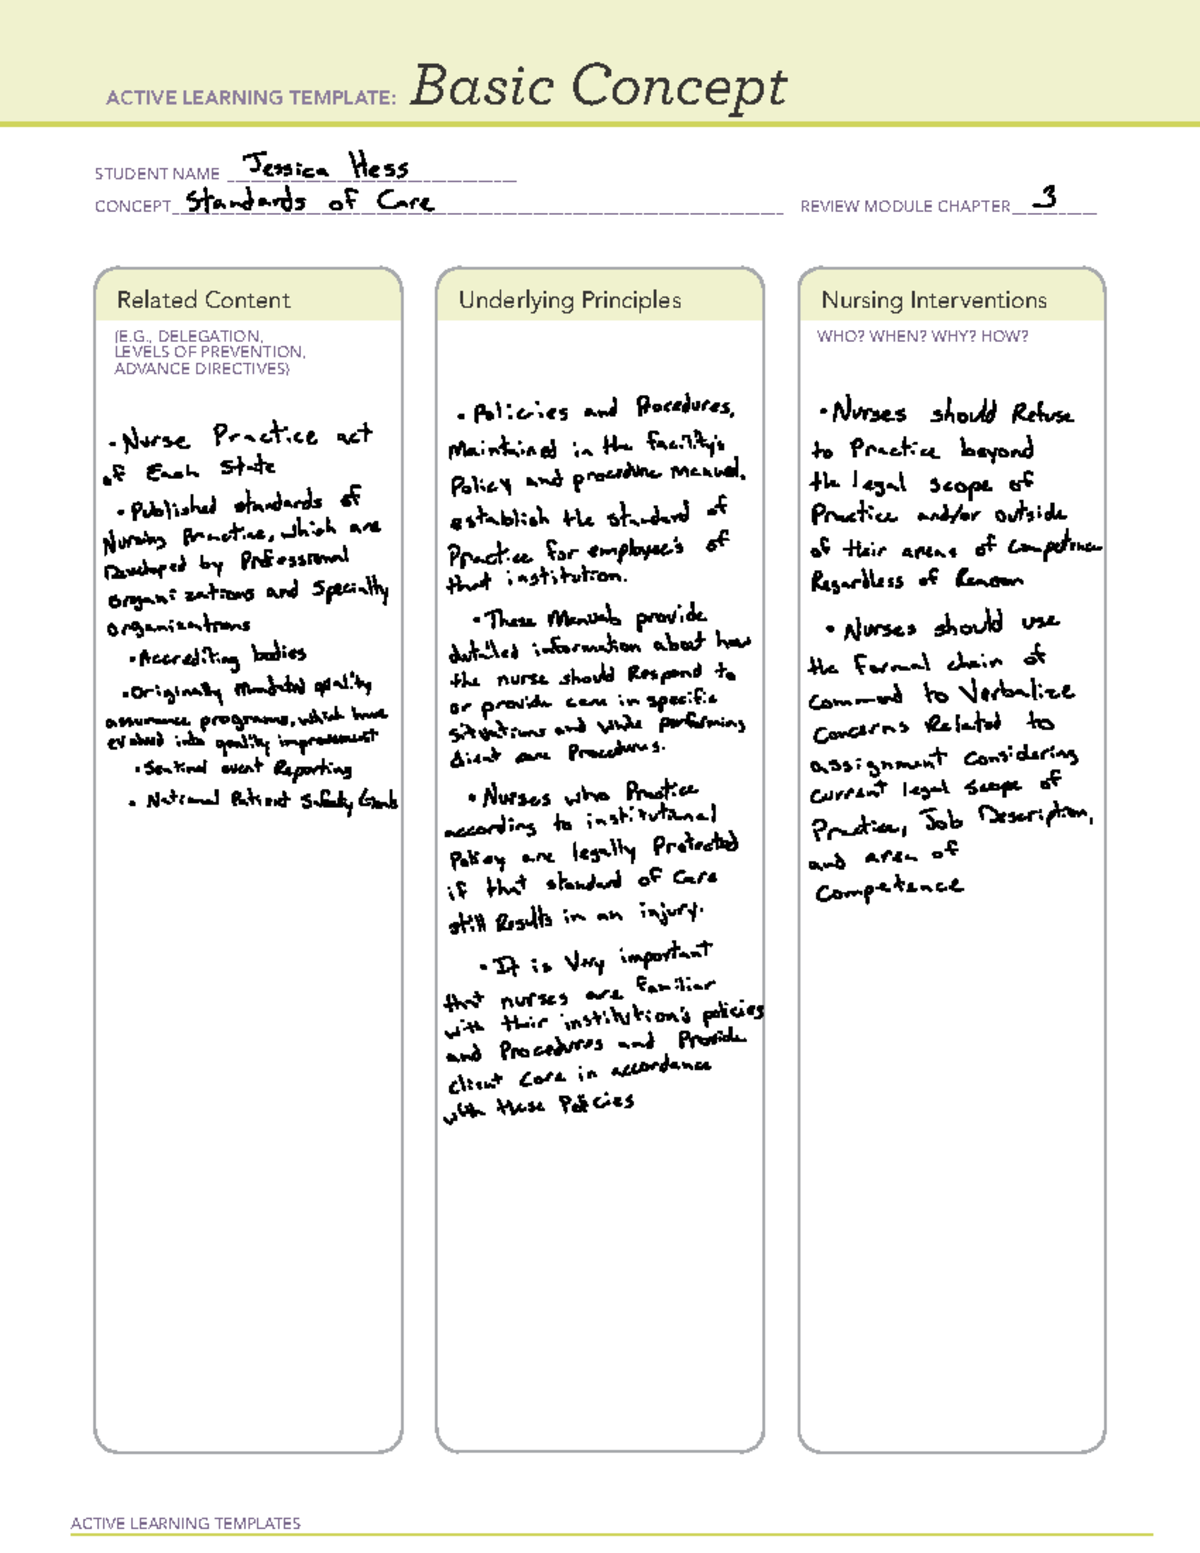 ACTIVE LEARNING TEMPLATE: Basic Concept
STUDENT NAME Jessica Hess
CONCEPT Standards of Care REVIEW MODULE CHAPTER 3
Related Content
(E.G., DELEGATION,
LEVELS OF PREVENTION,
ADVANCE DIRECTIVES)
• Nurse Practice act
of Each State
• Published standards of
Nursing Practice, which are
Developed by Professional
organizations and Specialty
organizations
• Accrediting bodies
• Originally Mandated quality
assurance programs, which have
evolved into quality improvement
• Sentinel event Reporting
• National Patient Safety Goals
Underlying Principles
• Policies and Procedures,
Maintained in the facility's
Policy and procedure manual,
establish the standard of
Practice for employee's of
that institution.
• These Manuals provide
detailed information about how
the nurse should Respond to
or provide care in specific
situations and while performing
client care Procedures.
• Nurses who Practice
according to institutional
Policy are legally Protected
if that standard of Care
still Results in an injury.
• It is Very important
that nurses are familiar
with their institution's policies
and Procedures and Provide
client Care in accordance
with these Policies
Nursing Interventions
WHO? WHEN? WHY? HOW?
• Nurses should Refuse
to Practice beyond
the legal scope of
Practice and/or outside
of their areas of Competence
Regardless of Reason
• Nurses should use
the Formal chain of
command to Verbalize
concerns Related to
assignment Considering
current legal scope of
Practice, Job Description,
and area of
Competence
ACTIVE LEARNING TEMPLATES